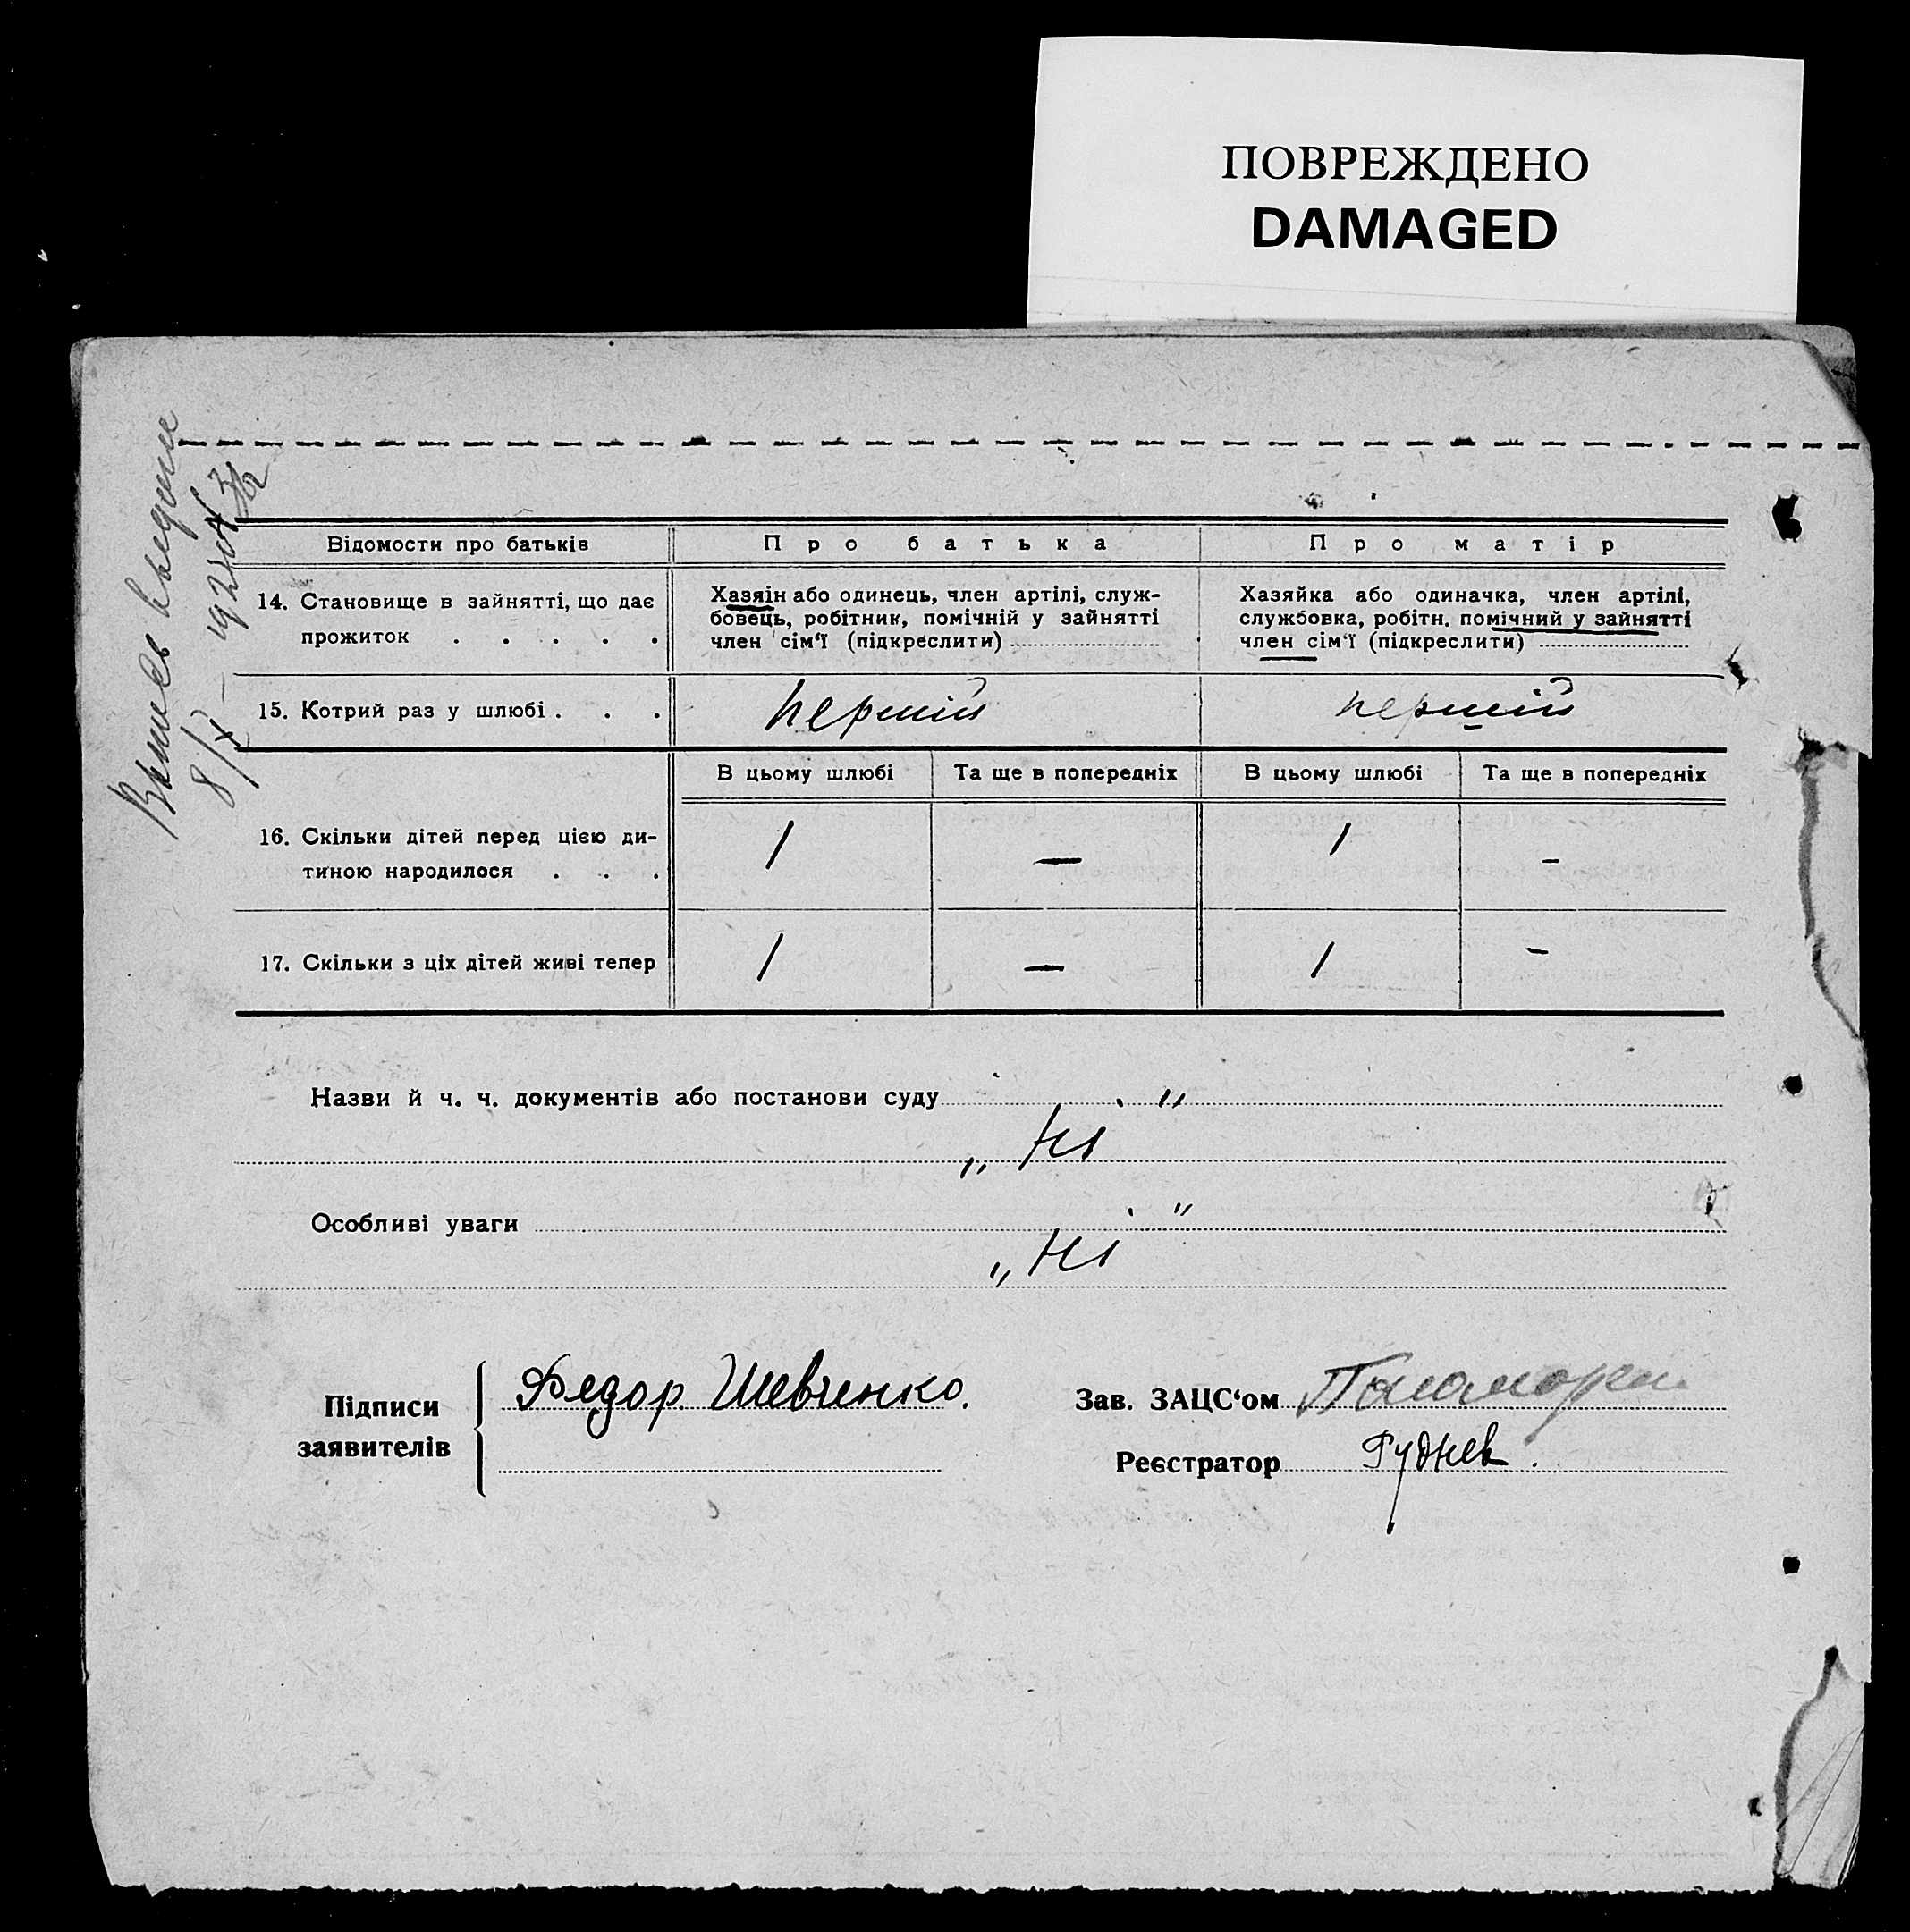 ПОВРЕЖДЕНО
DAMAGED
8/X — 192
Відомости про батьків
Про батька
Про матір
14. Становище в зайнятті, що дає
прожиток . . . . .
Хазяїн або одинець, член артілі, служ-
бовець, робітник, помічній у зайнятті
член сім‘ї (підкреслити)
Хазяйка або одиначка, член артілі,
службовка, робітн. помічний у зайнятті
член сім‘ї (підкреслити)
15. Котрий раз у шлюбі . . .
першій
першій
В цьому шлюбі
Та ще в попередніх
В цьому шлюбі
Та ще в попередніх
16. Скільки дітей перед цією ди-
тиною народилося . . .
1
—
1
–
17. Скільки з ціх дітей живі тепер
1
—
1
–
Назви й ч. ч. документів або постанови суду
„ Ні "
Особливі уваги
„ Ні "
Підписи
заявителів
Федор Шевченко.
Зав. ЗАЦС‘ом
Реєстратор
Руднев.